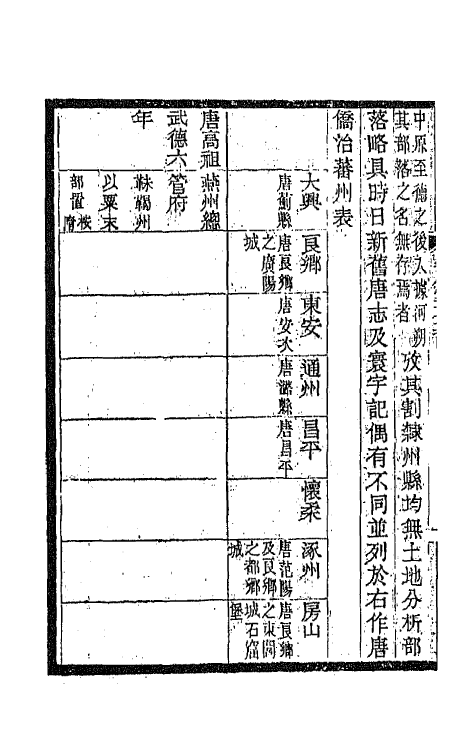 中原至德之後入據河朔
其部落之名無存焉者
攷其割隸州縣均無土地分析部
落略具時日新舊唐志及寰宇記偶有不同並列於右作唐
僑治蕃州表
大興
唐薊縣
良鄉
唐良鄉
之廣陽
城
東安
唐安次
通州
唐潞縣
昌平
唐昌平
懷柔
涿州
唐范陽
及良鄉
之都鄉
城
房山
唐良鄉
之東閭
城石窟
堡
唐高祖
武德六
年
燕州總
管府
靺鞨州
以粟末
部置
府